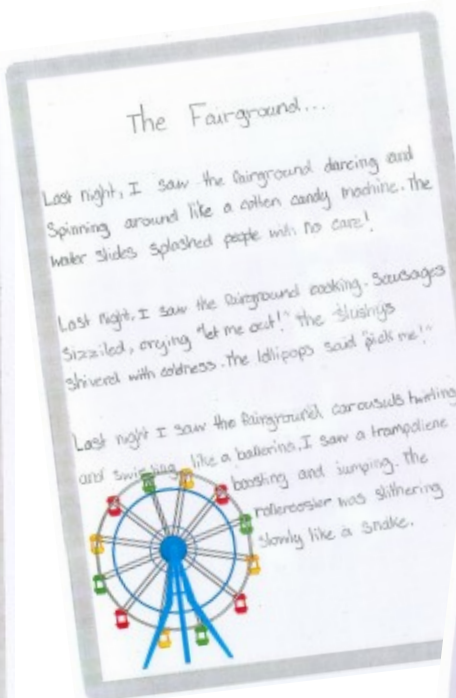 The Fairground...
Last night, I saw the fairground dancing and
Spinning around like a cotten candy machine. The
water slides splashed people with no care!
Last night, I saw the fairground cooking. Sausages
Sizziled, crying "let me out!" The slushys
shivered with coldness. The lollipops said "pick me!"
Last night I saw the fairground carousuls twirling
and swirling like a ballerina. I saw a trampoliene
boasting and jumping. The
rollercoaster was slithering
slowly like a snake.